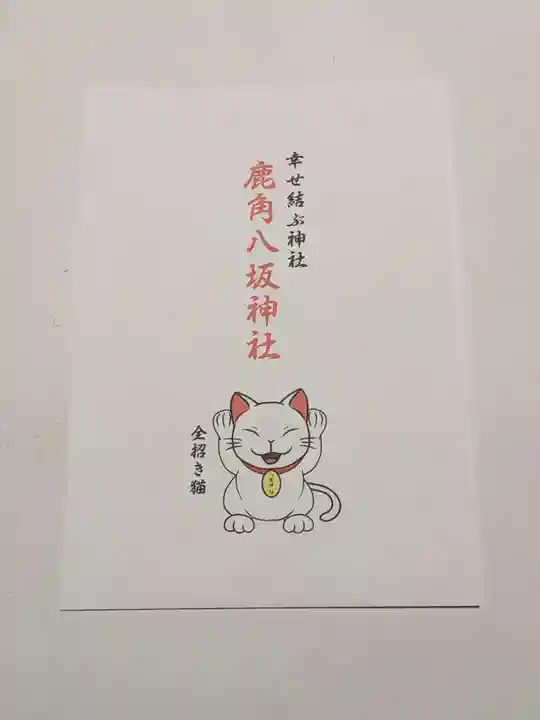 幸せ結ぶ神社
鹿角八坂神社
全招き猫